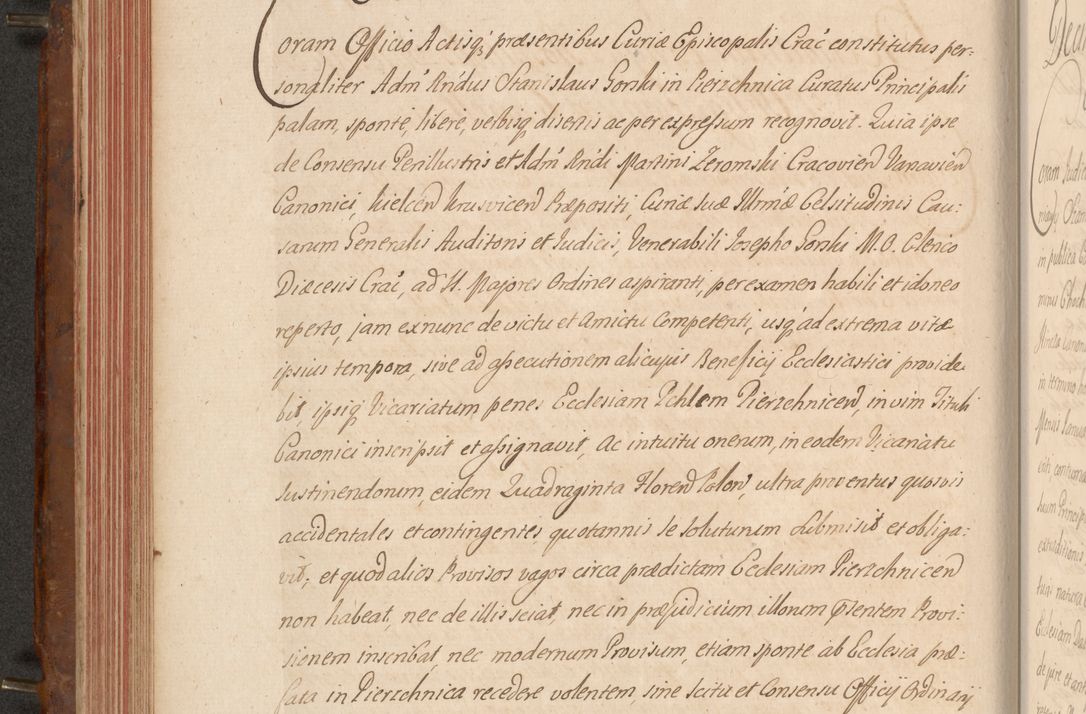 Coram Officio Actisq; præsentibus Curiæ Episcopalis Crac̃ constitutus per:
sonaliter Adm̃ Rńdus Stanislaus Gorski in Pierzchnica Curatus Principalis
palam, sponte, libere, verbisq; disertis ac per expressum recognovit. Quia ipse
de Consensu Perillustris et Adm̃ Rńdi Martini Zeromski Cracovien̄ Varsavien̄
Canonici, Kielcen̄ Krusvicen̄ Præpositi, Curiæ Suæ Illrm̃æ Celsitudinis Cau:
sarum Generalis Auditoris et Iudicis, Venerabili Iosepho Gorski M. O. Clerico
Diæcesis Crac̃, ad S. Majores Ordines aspiranti, per examen habili et idoneo
reperto, jam ex nunc de victu et Amictu Competenti, usq; ad extrema vitæ
ipsius tempora, sive ad assecutionem alicujus Beneficij Ecclesiastici provide
bit, ipsiq; Vicariatum penes Ecclesiam Pchlem Pierzchnicen̄, in vim Tituli
Canonici inscripsit et assignavit, Ac intuitu onerum, in eodem Vicariatu
Sustinendorum, eidem Quadraginta Floren̄ Polon̄, ultra proventus quosvis
accidentales et contingentes quotannis se soluturum Submisit et obliga:
vit; et quod alios Provisos vagos circa prædictam Ecclesiam Pierzchnicen̄
non habeat, nec de illis sciat, nec in præjudicium illorum p̃sentem Provi:
sionem inscribat, nec modernum Provisum, etiam sponte ab Ecclesia præ:
fata in Pierzchnica recedere volentem, sine Scitu et Consensu Officij Ordinarij